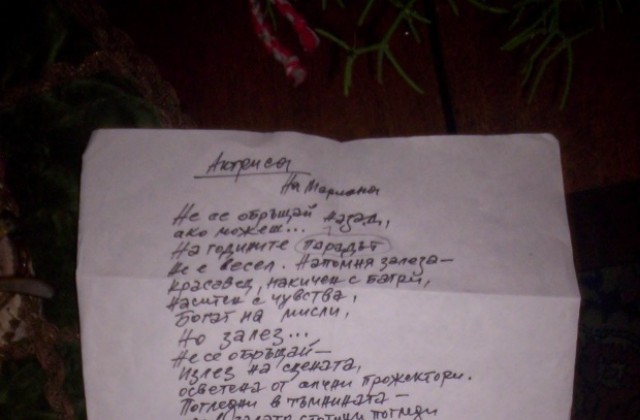 Актриса
На Мариана
Не се обръщай назад,
ако можеш...
На годините парадът
не е весел. Напомня залеза—
красавец, накичен с багри,
наситен с чувства,
Богат на мисли,
Но залез...
Не се обръщай—
Излез на сцената,
осветена от алчни прожектори.
Погледни в тъмнината—
залата стотици погледи